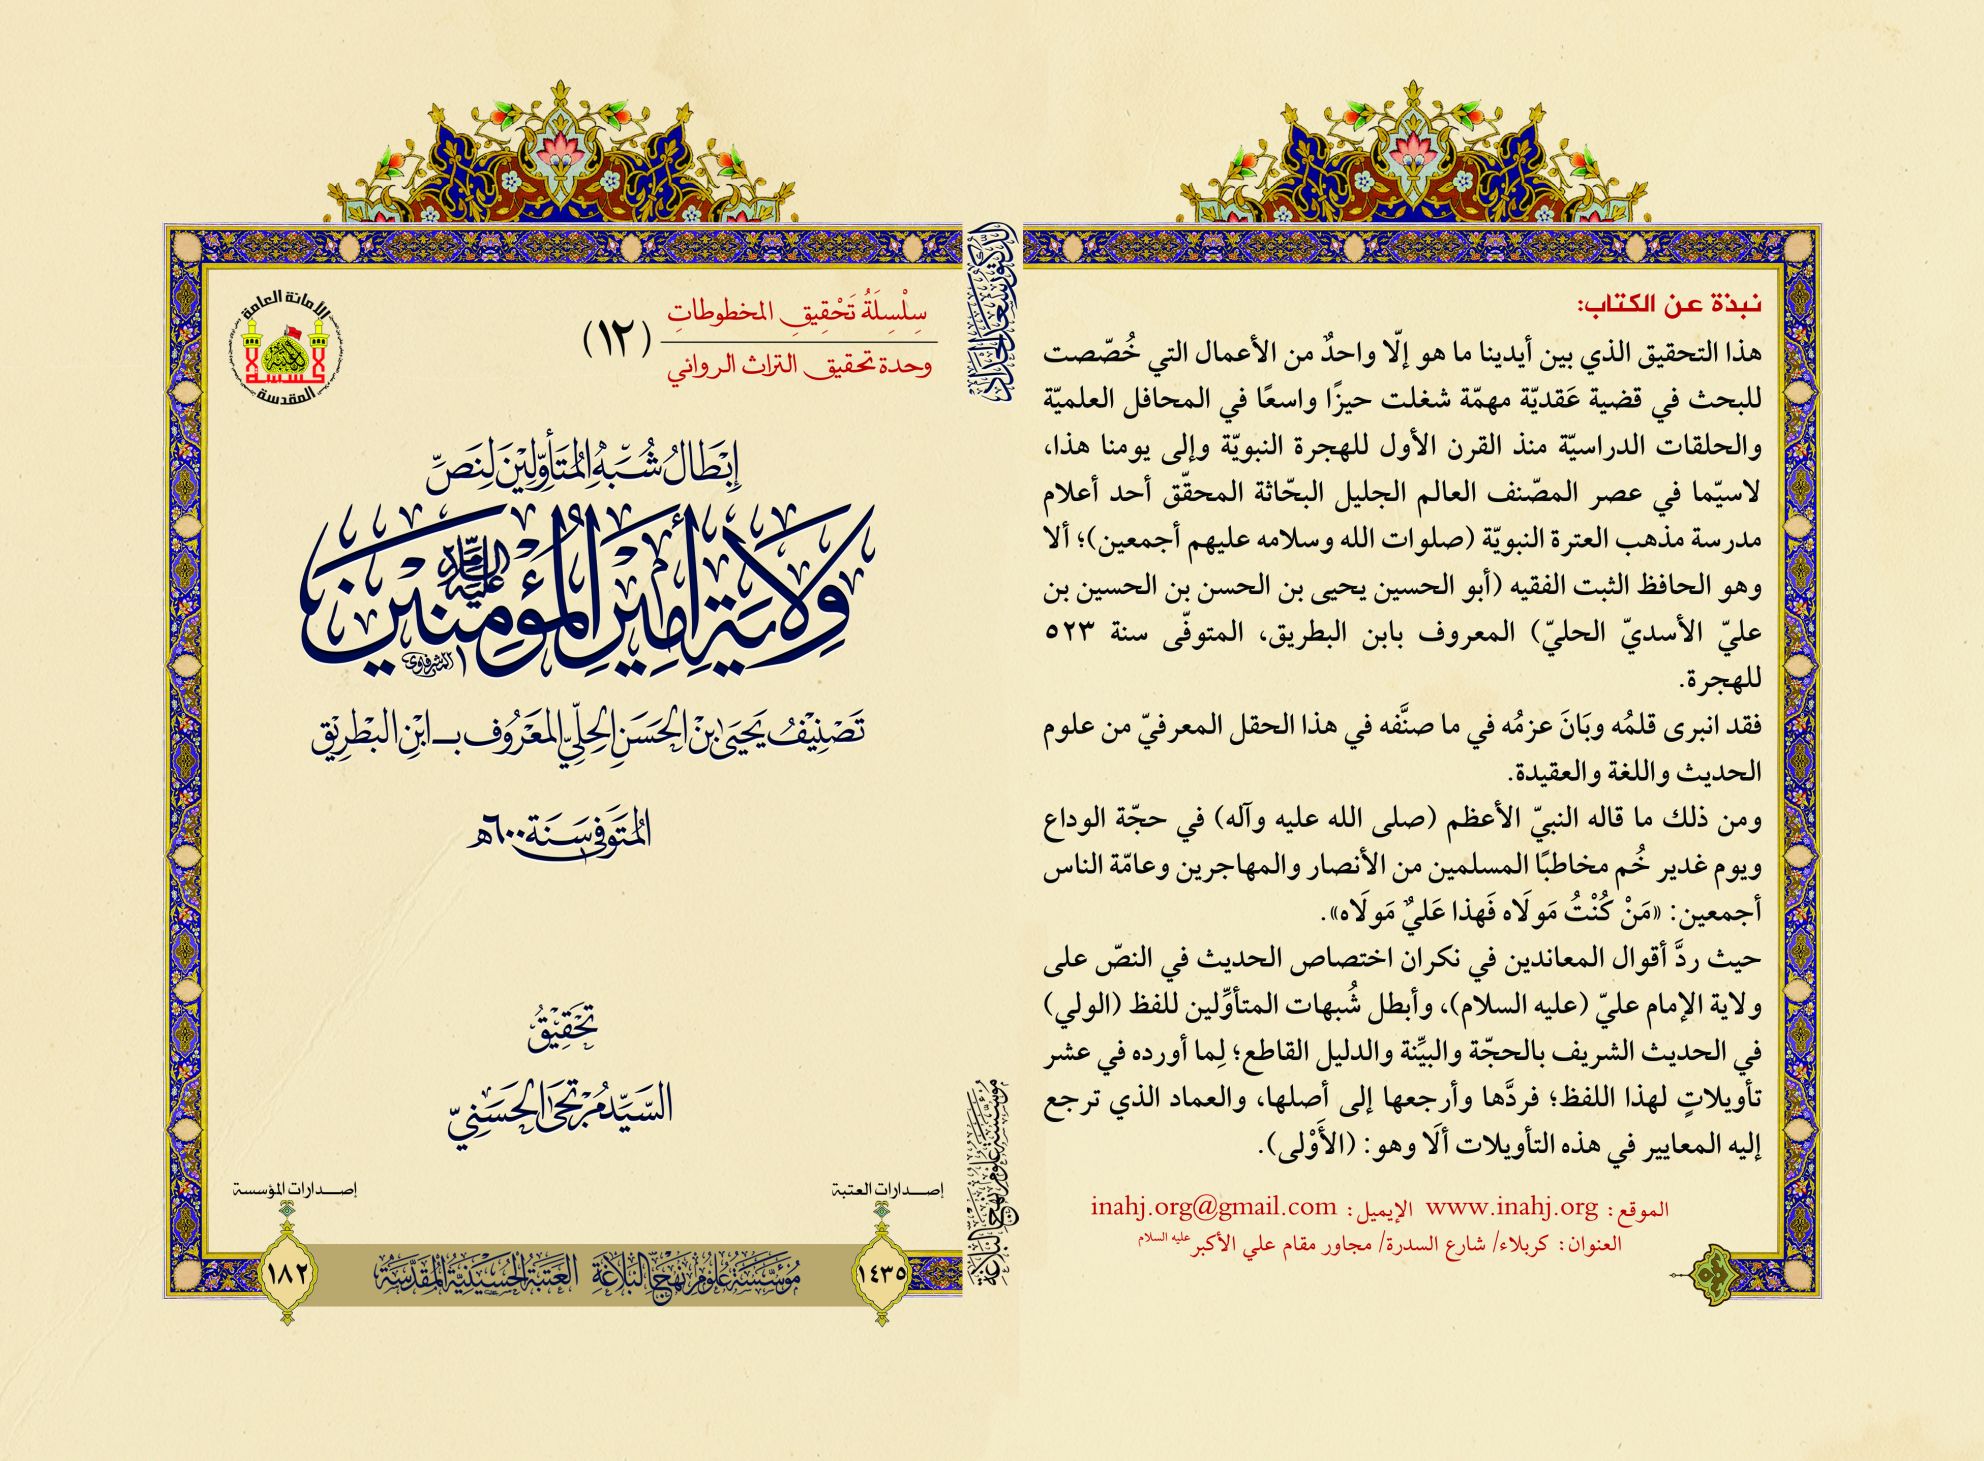 سِلْسِلَةُ تَحْقِيقِ المخطوطاتِ
(١٢)
وحدة تحقيق التراث الروائي
الأمانة العامة
للعتبة
الحسينية
المقدسة
إِبْطَالُ شُبَهِ الْمُتَأَوِّلِيْنَ لِنَصِّ
وِلَايَةِ أَمِيرِ الْمُؤْمِنِينَ
عليه السلام
تَصْنِيْفُ يَحْيَى بْنِ الْحَسَنِ الْحِلِّيّ الْمَعْرُوْف بـ ابْنِ الْبَطْرِيْقِ
الْمُتَوَفَّى سَنَة ٦٠٠هـ
تَحْقِيْقُ
السَّيِّد مُرْتَجَى الْحَسَنِيّ
إصـدارات العتبة
إصـدارات المؤسسة
١٤٣٥
مُؤَسَّسَةُ عُلُومِ نَهْجِ الْبَلَاغَةِ الْعَتَبَةُ الْحُسَيْنِيَّةُ الْمُقَدَّسَةُ
١٨٢
مؤسسة علوم نهج البلاغة
نبذة عن الكتاب:
هذا التحقيق الذي بين أيدينا ما هو إلّا واحدٌ من الأعمال التي خُصّصت
للبحث في قضية عَقديّة مهمّة شغلت حيزًا واسعًا في المحافل العلميّة
والحلقات الدراسيّة منذ القرن الأول للهجرة النبويّة وإلى يومنا هذا،
لاسيّما في عصر المصّنف العالم الجليل البحّاثة المحقّق أحد أعلام
مدرسة مذهب العترة النبويّة (صلوات الله وسلامه عليهم أجمعين)؛ ألا
وهو الحافظ الثبت الفقيه (أبو الحسين يحيى بن الحسن بن الحسين بن
عليّ الأسديّ الحليّ) المعروف بابن البطريق، المتوفّى سنة ٥٢٣
للهجرة.
فقد انبرى قلمُه وبَانَ عزمُه في ما صنَّفه في هذا الحقل المعرفيّ من علوم
الحديث واللغة والعقيدة.
ومن ذلك ما قاله النبيّ الأعظم (صلى الله عليه وآله) في حجّة الوداع
ويوم غدير خُم مخاطبًا المسلمين من الأنصار والمهاجرين وعامّة الناس
أجمعين: «مَنْ كُنْتُ مَولَاه فَهذا عَليٌ مَولَاه».
حيث ردَّ أقوال المعاندين في نكران اختصاص الحديث في النصّ على
ولاية الإمام عليّ (عليه السلام)، وأبطل شُبهات المتأوِّلين للفظ (الولي)
في الحديث الشريف بالحجّة والبيِّنة والدليل القاطع؛ لِما أورده في عشر
تأويلاتٍ لهذا اللفظ؛ فردَّها وأرجعها إلى أصلها، والعماد الذي ترجع
إليه المعايير في هذه التأويلات ألَا وهو: (الأَوْلى).
الموقع: www.inahj.org الإيميل: inahj.org@gmail.com
العنوان: كربلاء/ شارع السدرة/ مجاور مقام علي الأكبر عليه السلام